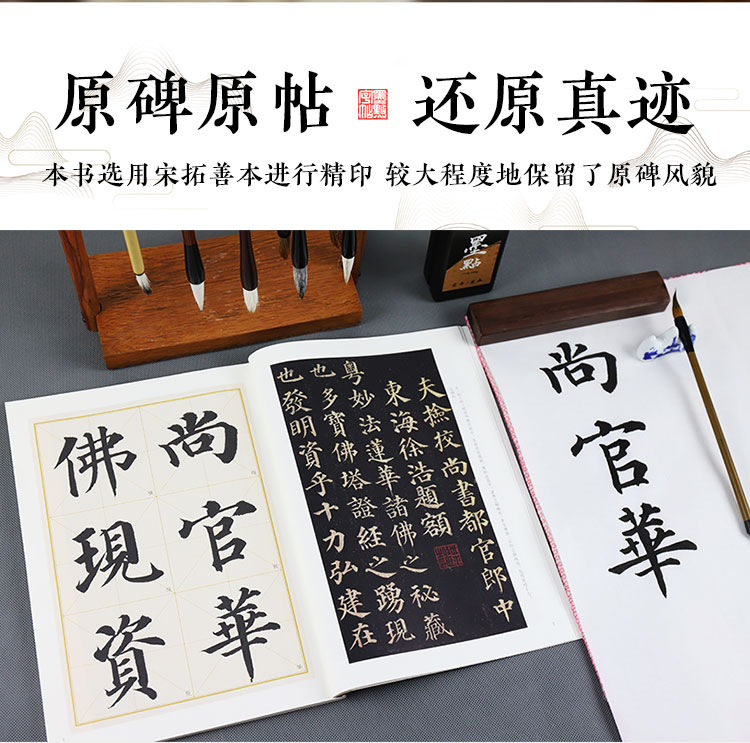 原碑原帖 还原真迹
本书选用宋拓善本进行精印 较大程度地保留了原碑风貌
墨點
尚官華
佛現資
夫撿挍尚書都官郎中
東海徐浩題額
粵妙法蓮華諸佛之秘藏
也多寶佛塔證經之踴現
也發明資乎十力弘建在
尚官華